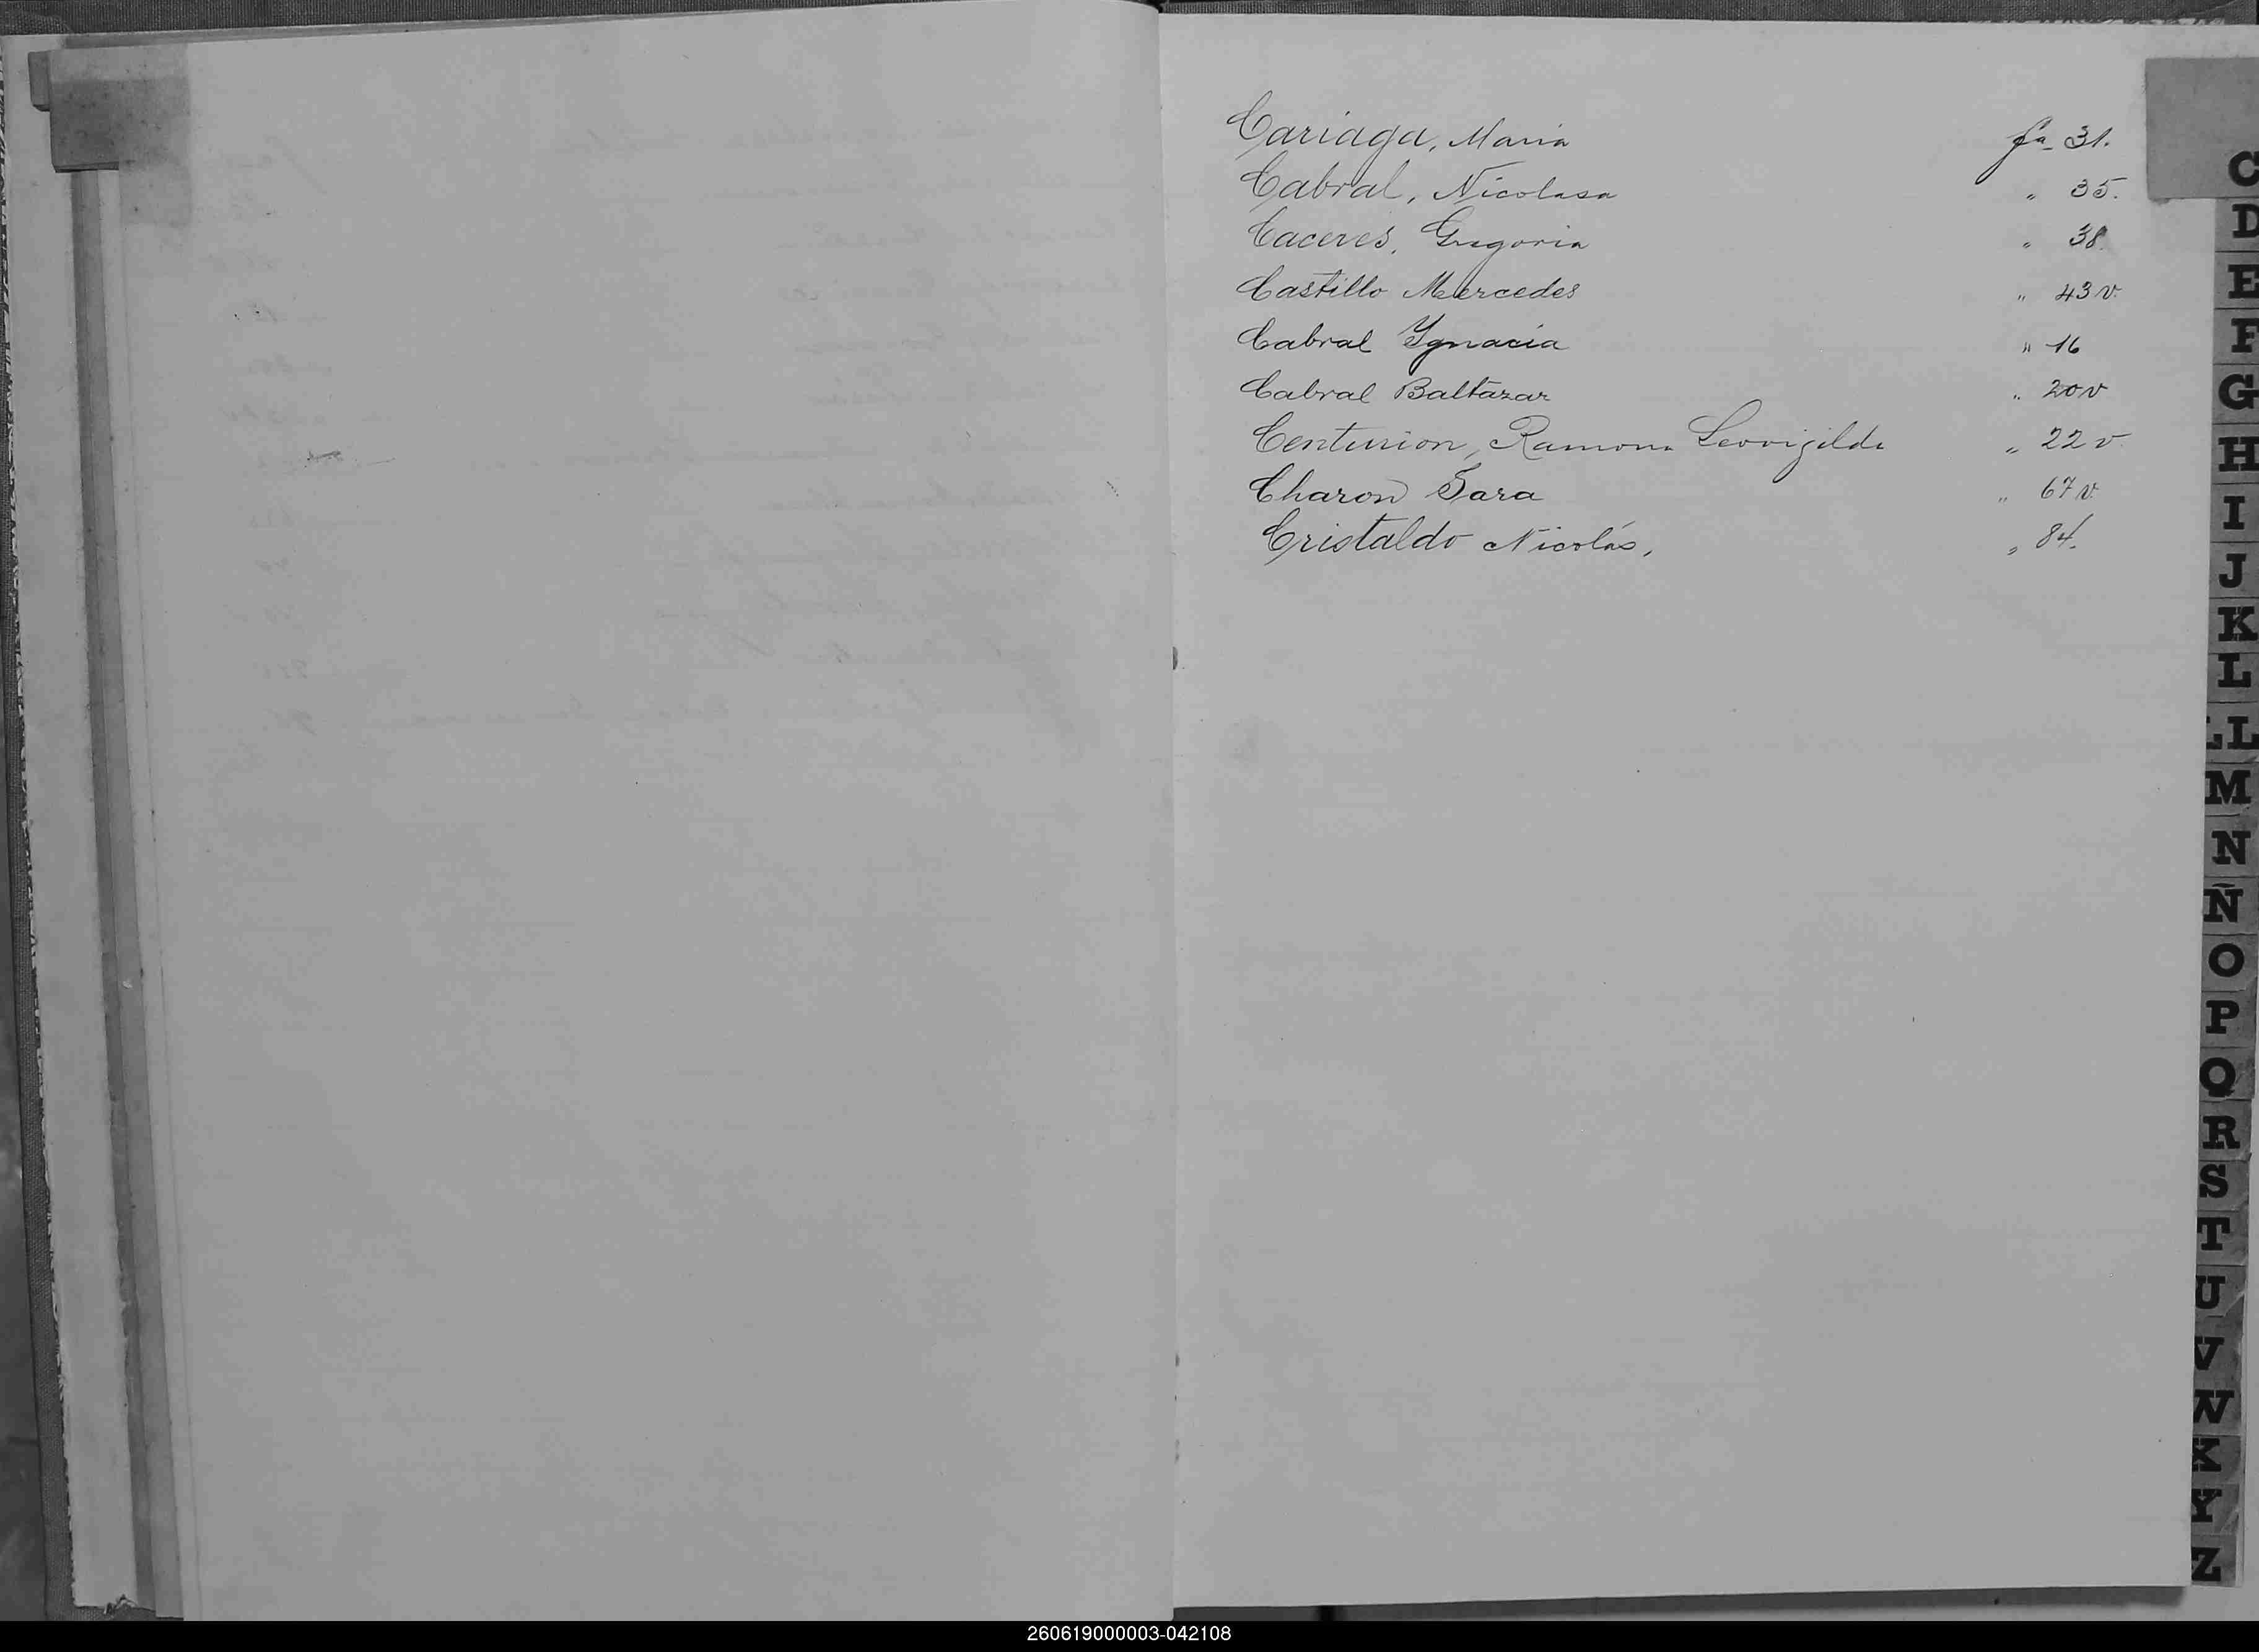 Cariaga, Maria fa 31.
Cabral, Nicolasa " 35.
Caceres, Gregoria " 38.
Castillo Mercedes " 43 v.
Cabral Ygnacia " 16
Cabral Baltazar " 20 v
Centurion, Ramona Leovigilda " 22 v
Charon Sara " 67 v.
Cristaldo Nicolás, " 84.
C
D
E
F
G
H
I
J
K
L
LL
M
N
Ñ
O
P
Q
R
S
T
U
V
W
X
Y
Z
260619000003-042108